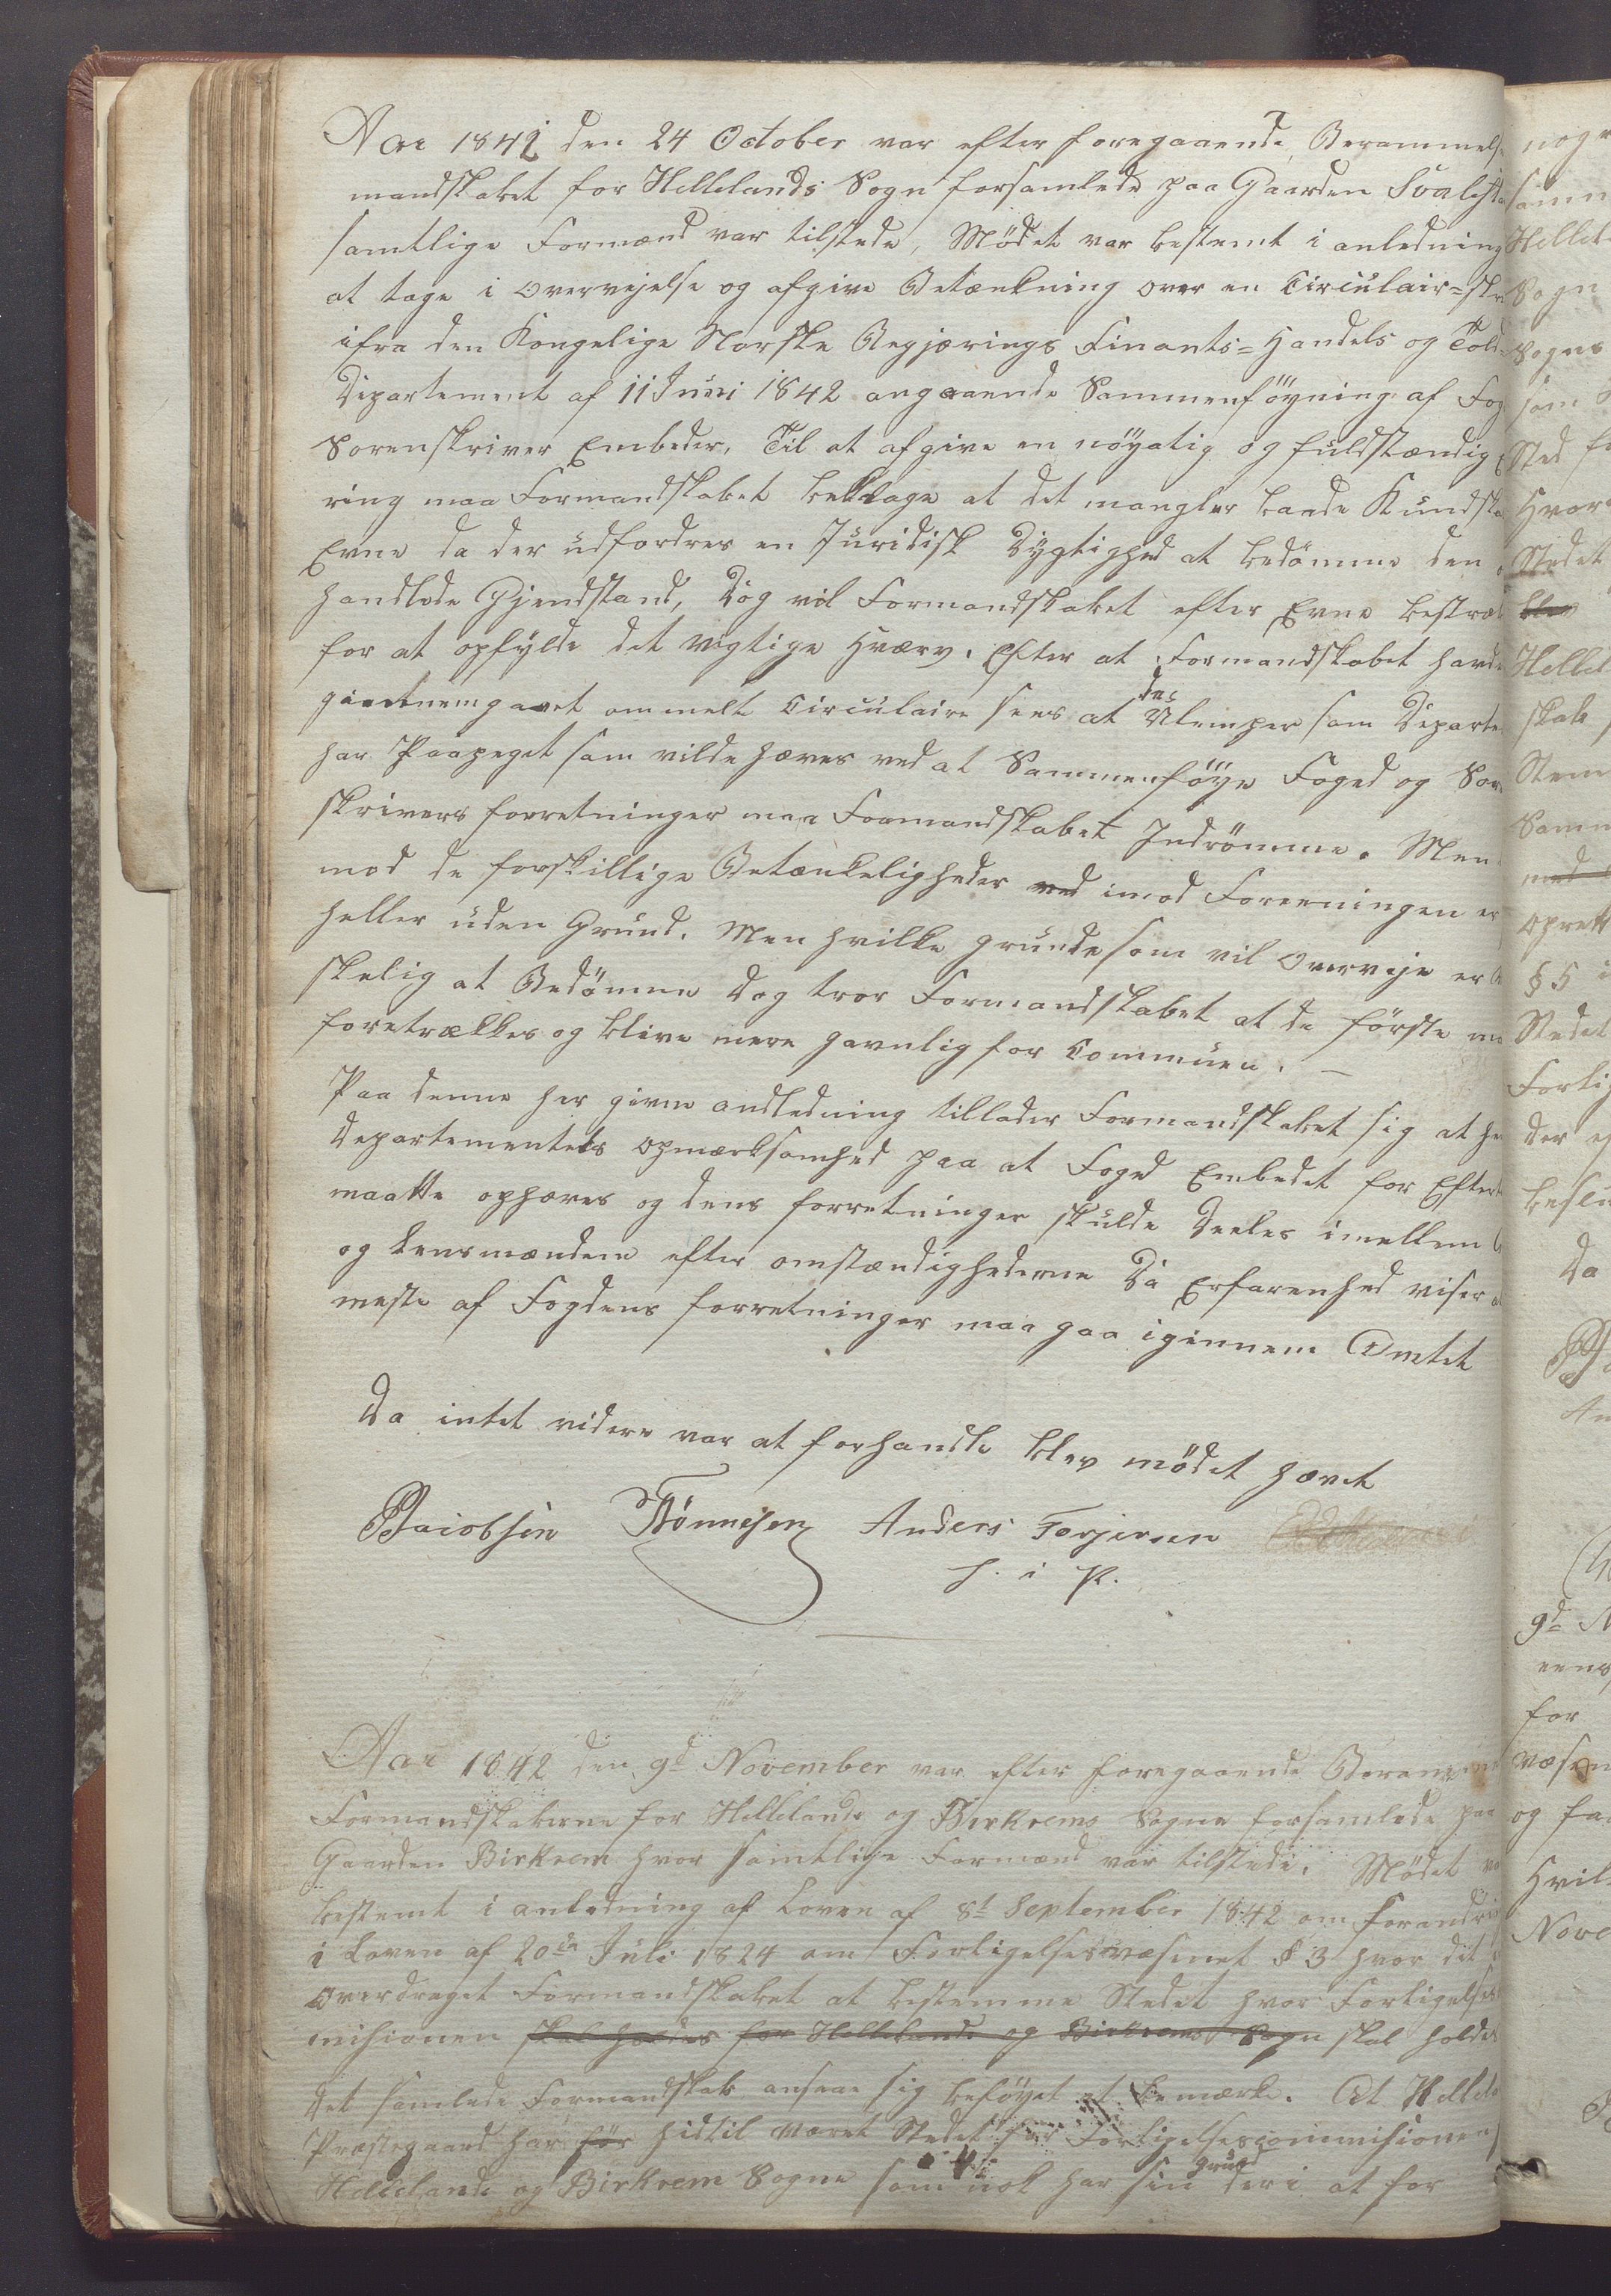 Aar 1842 den 24 October var efter foregaaende Berammels
mandskabet for Hellelands Sogn forsamlede paa Gaarden Svalest
samtlige Formænd var tilstede, Mödet var bestemt i anledning
at tage i Overvejelse og afgive Betænkning over en Circulair=skr
ifra den Kongelige Norske Regjærings Finants=Handels og Told
Departement af 11 Juni 1842 angaaende Sammenföyning af Fog
Sorenskriver Embeder. Til at afgive en nöyatig og fuldstændig
ring maa Formandskabet beklage at det mangler baade Kundska
Evne da der udfordres en Juridisk Dygtighed at bedömme den
handlede Gjendstand, Dog vil Formandskabet efter Evne bestræ
for at opfylde det vigtige Hværv. Efter at Formandskabet havde
giennemgaaet ommelt Circulaire sees at de Ulemper som Departe
har Paapeget som vilde hæves ved at Sammenföye Foged og Sor
skrivers forretninger maa Formandskabet Indrömme. Men
mod de forskillige Betænkeligheder ved imod Foreeningen er
heller uden Grund. Men hvilke grunde som vil Overveje er
skelig at Bedömme Dog tror Formandskabet at de förste m
foretrækkes og blive mere gavnlig for Commuen. –
Paa denne her givne andledning tillader Formandskabet sig at he
Departementets opmærksomhed paa at Foged Embedet for Efter
maatte ophæves og dens forretninger skulde Deeles imellem
og Lensmændene efter omstændighederne Da Erfarenhed viser a
meste af Fogdens forretninger maa gaa igiennem Amtet
Da intet videre var at forhandle blev mödet hævet
Jacobsen Tönnesen Anders Torjersen
h. i P.
Aar 1842 den 9d November var efter foregaaende Beramm
Formandskaberne for Hellelands og Birkrems Sogne forsamlede paa
Gaarden Birkrem hvor samtlige Formænd var tilstede. Mödet va
bestemt i anledning af Loven af 8t September 1842 om Forandri
i Loven af 20de Juli 1824 om Forligelsesvæsenet § 3 hvor det
Overdraget Formandskabet at bestemme Stedet hvor Forligelses
misionen skal holdes for Hellelands og Birkrems Sogn skal holdes
Det samlede Formandskab anseae sig beföyet at bemærke. At Hellela
Præstegaard har för hidtil været Stedet for Forligelsescommisionen
Hellelands og Birkrem Sogne som nok har sin grund deri at for